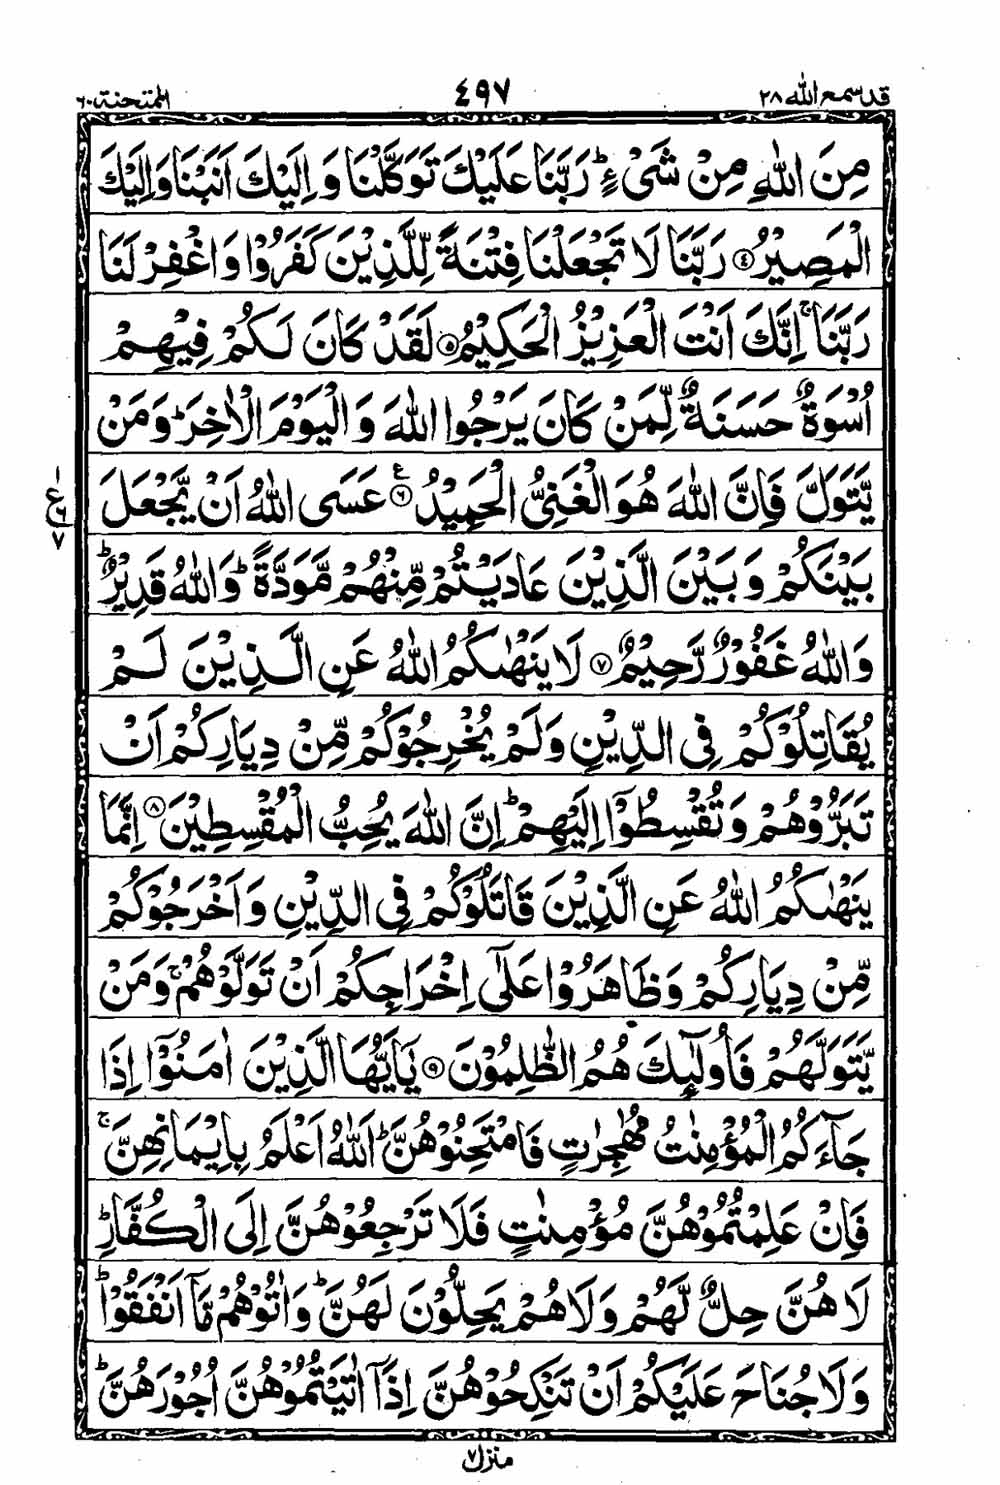 قد سمع الله ٢٨
٤٩٧
الممتحنة ٦٠
مِنَ اللّٰهِ مِنْ شَیْءٍ ؕ رَبَّنَا عَلَیْكَ تَوَكَّلْنَا وَ اِلَیْكَ اَنَبْنَا وَ اِلَیْكَ
الْمَصِیْرُ ﴿۴﴾ رَبَّنَا لَا تَجْعَلْنَا فِتْنَةً لِّلَّذِیْنَ كَفَرُوْا وَ اغْفِرْ لَنَا
رَبَّنَا ۚ اِنَّكَ اَنْتَ الْعَزِیْزُ الْحَكِیْمُ ﴿۵﴾ لَقَدْ كَانَ لَكُمْ فِیْهِمْ
اُسْوَةٌ حَسَنَةٌ لِّمَنْ كَانَ یَرْجُوا اللّٰهَ وَ الْیَوْمَ الْاٰخِرَ ؕ وَ مَنْ
یَّتَوَلَّ فَاِنَّ اللّٰهَ هُوَ الْغَنِیُّ الْحَمِیْدُ ﴿۶﴾ ع عَسَی اللّٰهُ اَنْ یَّجْعَلَ
بَیْنَكُمْ وَ بَیْنَ الَّذِیْنَ عَادَیْتُمْ مِّنْهُمْ مَّوَدَّةً ؕ وَ اللّٰهُ قَدِیْرٌ ؕ
وَ اللّٰهُ غَفُوْرٌ رَّحِیْمٌ ﴿۷﴾ لَا یَنْهٰىكُمُ اللّٰهُ عَنِ الَّذِیْنَ لَمْ
یُقَاتِلُوْكُمْ فِی الدِّیْنِ وَ لَمْ یُخْرِجُوْكُمْ مِّنْ دِیَارِكُمْ اَنْ
تَبَرُّوْهُمْ وَ تُقْسِطُوْۤا اِلَیْهِمْ ؕ اِنَّ اللّٰهَ یُحِبُّ الْمُقْسِطِیْنَ ﴿۸﴾ اِنَّمَا
یَنْهٰىكُمُ اللّٰهُ عَنِ الَّذِیْنَ قَاتَلُوْكُمْ فِی الدِّیْنِ وَ اَخْرَجُوْكُمْ
مِّنْ دِیَارِكُمْ وَ ظَاهَرُوْا عَلٰۤی اِخْرَاجِكُمْ اَنْ تَوَلَّوْهُمْ ۚ وَ مَنْ
یَّتَوَلَّهُمْ فَاُولٰٓىِٕكَ هُمُ الظّٰلِمُوْنَ ﴿۹﴾ یٰۤاَیُّهَا الَّذِیْنَ اٰمَنُوْۤا اِذَا
جَآءَكُمُ الْمُؤْمِنٰتُ مُهٰجِرٰتٍ فَامْتَحِنُوْهُنَّ ؕ اَللّٰهُ اَعْلَمُ بِاِیْمَانِهِنَّ ۚ
فَاِنْ عَلِمْتُمُوْهُنَّ مُؤْمِنٰتٍ فَلَا تَرْجِعُوْهُنَّ اِلَی الْكُفَّارِ ؕ
لَا هُنَّ حِلٌّ لَّهُمْ وَ لَا هُمْ یَحِلُّوْنَ لَهُنَّ ؕ وَ اٰتُوْهُمْ مَّاۤ اَنْفَقُوْا ؕ
وَ لَا جُنَاحَ عَلَیْكُمْ اَنْ تَنْكِحُوْهُنَّ اِذَاۤ اٰتَیْتُمُوْهُنَّ اُجُوْرَهُنَّ ؕ
منزل ٧